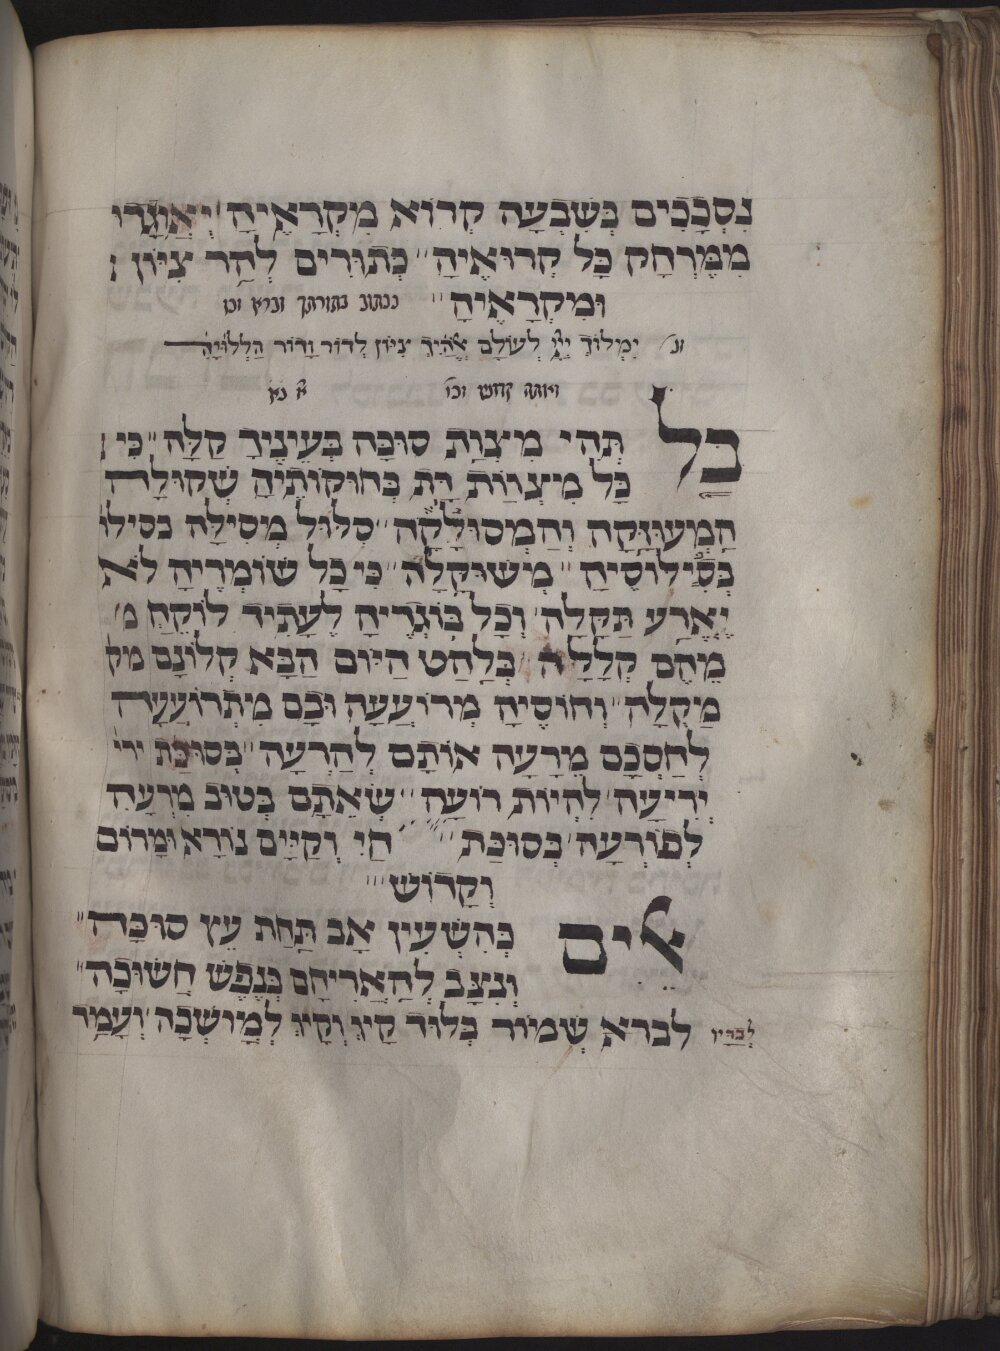 נִסְכָּכִים כְּשִׁבְעָה קְרוֹא מִקְרָאֶיהָ וְיֵאָגְרוּ
מִמֶּרְחָק כָּל קְרוּאֶיהָ כְּתוּרִים לְהַר צִיּוֹן
וּמִקְרָאֶיהָ ככתוב בתורתך
ונ׳ יִמְלוֹךְ יְיָ לְעוֹלָם אֱלֹהַיִךְ צִיּוֹן לְדוֹר וָדוֹר הַלְלוּיָהּ
ואתה קדוש וכו׳ א׳ נא
בל תְּהִי מִצְוַת סוּכָּה בְּעֵינֶיךָ קַלָּה כִּי
כָּל מִצְוֹת דָּת כְּחוּקּוֹתֶיהָ שְׁקוּלָה
הַמְעוּזָּקָה וְהַמְסוּקָּלָה סִלּוּל מְסִילָּה
בְּסִילּוּסֶיהָ מְשׁוּקָלָה כִּי כָל שׁוֹמְרֶיהָ לֹא
יֶאֱרַע תַּקָּלָה וְכָל בּוֹגְרֶיהָ לֶעָתִיד לוֹקֵחַ מ׳
מֵהֶם קְלָלָה בְּלַהַט הַיּוֹם הַבָּא קְלוֹנָם מק
מַקְלֶה וְחוֹסֶיהָ מְרוֹעֲעָה וּבָם מִתְרוֹעֲעָה
לְחַסְכָם מֵרָעָה אוֹתָם לְהַרְעָה בְּסוּכַּת ירי
יְרִיעָה לִהְיוֹת רוֹעֶה שְׂאֵתָם בְּטוּב מִרְעֶה
לְפוֹרְעָה בְּסוּכַּת חַי וְקַיָּים נוֹרָא וּמָרוֹם
וְקָדוֹשׁ
לים כְּהִשְׁעִין אָב תַּחַת עֵץ סוּכָּה
וְנִצָּב לְהַאֲרִיחָם כְּנֶפֶשׁ חֲשׁוּכָה
לִבְדָּיו לברא שְׁמוֹר כְּלוּד קַו וְקַו לְמוֹשְׁכָה וְעָמַד